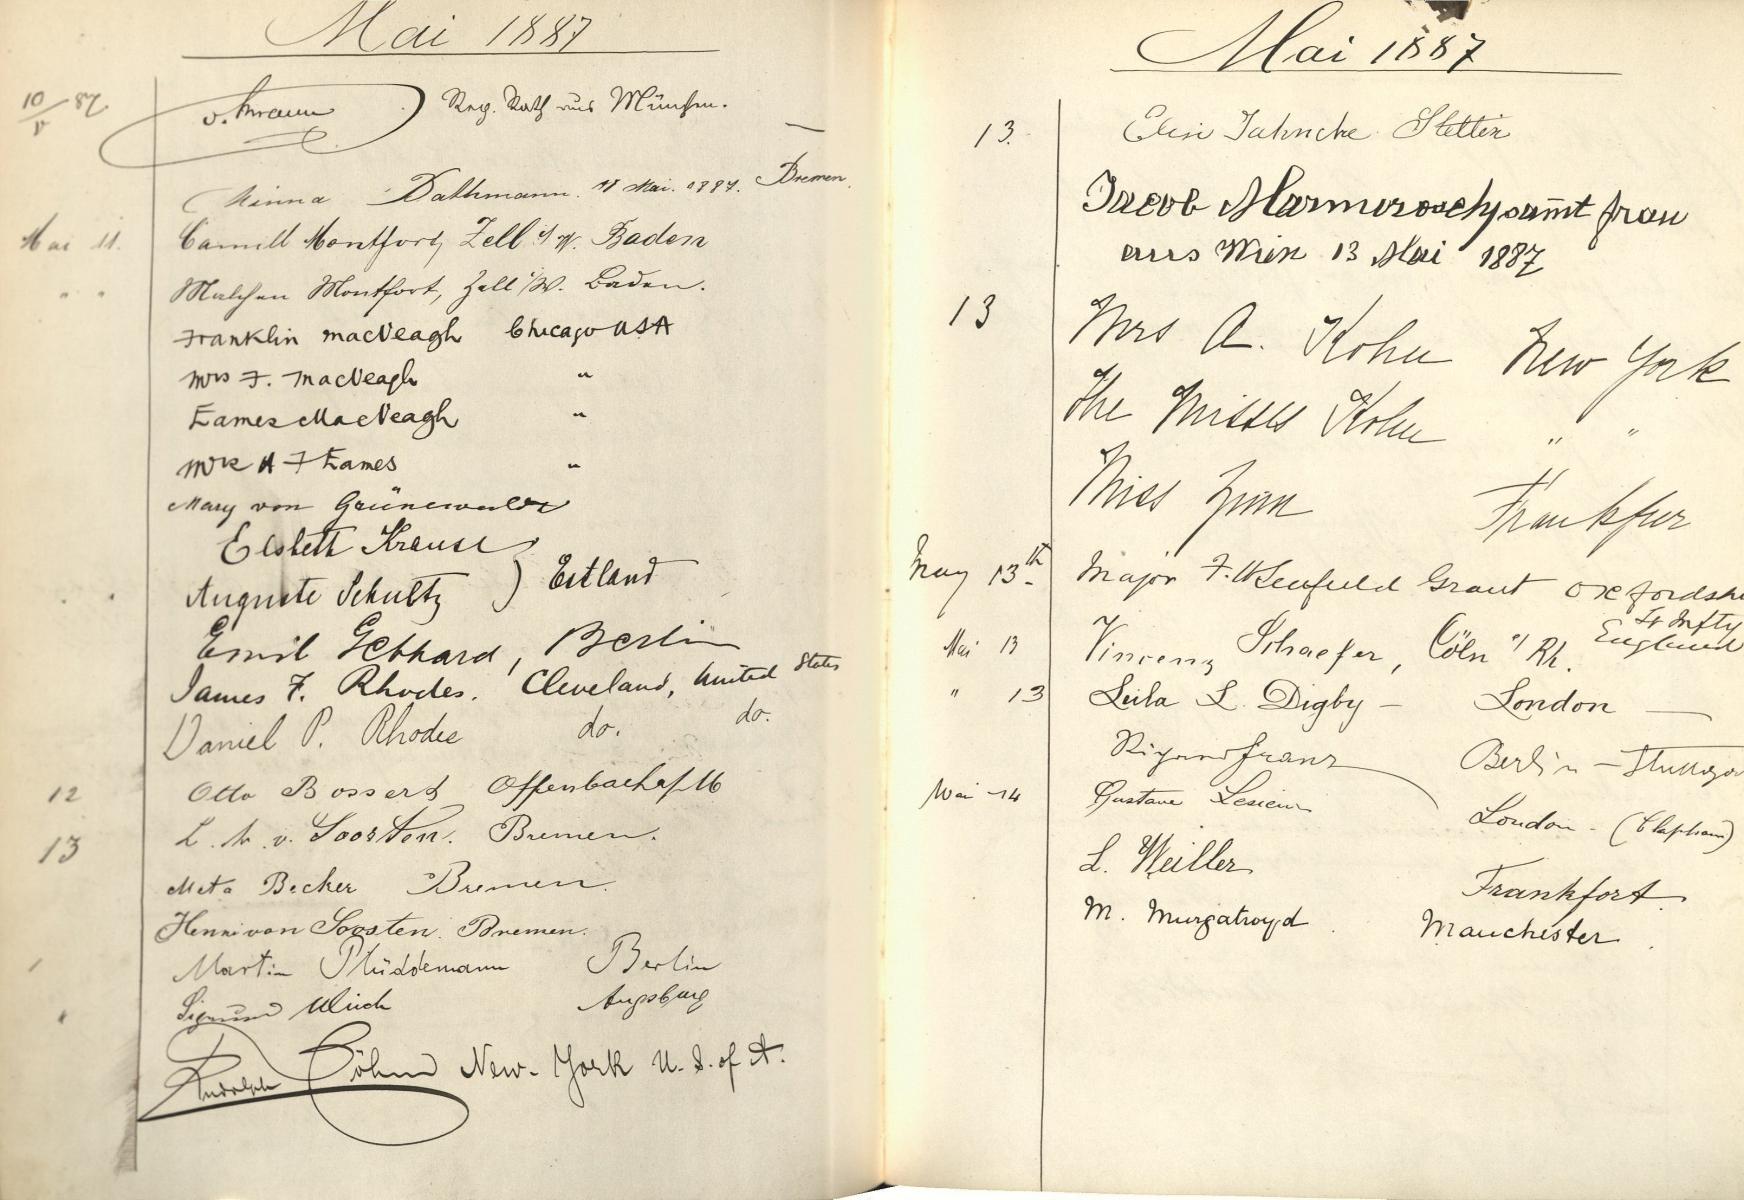 Mai 1887
10/V 87 Reg. Rath aus München.
Minna Dathmann. 11 Mai. 1887. Bremen.
Mai 11. Camill Montfort, Zell i/W. Baden
" " Malchen Montfort, Zell i/W. Baden.
Franklin MacVeagh Chicago USA
Mrs F. MacVeagh "
Eames MacVeagh "
Mrs A F Eames "
Mary von Grünewaldt
Elsbeth Krause
Auguste Schultz } Estland
Emil Gebhard, Berlin
James F. Rhodes. Cleveland, United States
Daniel P. Rhodes do. do.
12 Otto Bossert Offenbach a/M
13 L. v. Soosten. Bremen.
Meta Becker Bremen.
Henni van Soosten. Bremen.
Martin Plüddemann Berlin
Sigmund Ulrich Augsburg
Rudolph Böhm New-York U.S. of A.
Mai 1887
13. Elise Jahncke Stettin
Jacob Marmorosch samt frau
aus Wien 13 Mai 1887
13 Mrs A. Kohn New York
The Misses Kohn " "
Miss Zinn Frankfur
May 13th Major F. Grant Oxfordsh
Lt Infty
England
Mai 13 Vincenz Schaefer, Cöln a/Rh.
" 13 Leila L. Digby – London —
Franz Berlin –
Mai 14 Gustave London – (Clapham)
L. Weiller Frankfort.
M. Murgatroyd Manchester